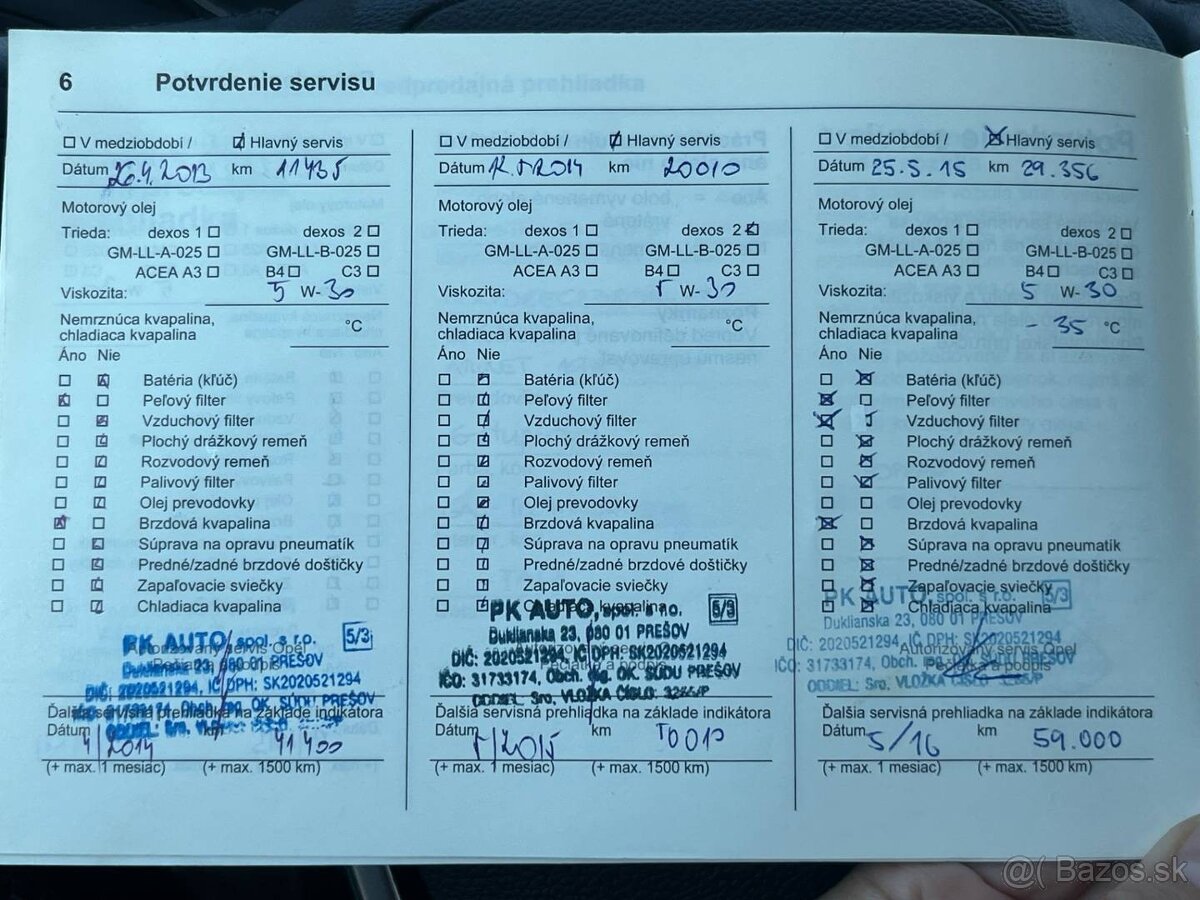 6 Potvrdenie servisu
V medziobdobí / Hlavný servis
Dátum 26.4.2013 km 11435
Motorový olej
Trieda: dexos 1 dexos 2
GM-LL-A-025 GM-LL-B-025
ACEA A3 B4 C3
Viskozita: 5 W-30
Nemrznúca kvapalina,
chladiaca kvapalina °C
Áno Nie
Batéria (kľúč)
Peľový filter
Vzduchový filter
Plochý drážkový remeň
Rozvodový remeň
Palivový filter
Olej prevodovky
Brzdová kvapalina
Súprava na opravu pneumatík
Predné/zadné brzdové doštičky
Zapaľovacie sviečky
Chladiaca kvapalina
PK AUTO, spol. s r.o. 5/3
Autorizovaný servis Opel
Duklianska 23, 080 01 PREŠOV
DIČ: 2020521294, IČ DPH: SK2020521294
Ďalšia servisná prehliadka na základe indikátora
Dátum 4/2014 km 41400
(+ max. 1 mesiac) (+ max. 1500 km)
V medziobdobí / Hlavný servis
Dátum 2014 km 20010
Motorový olej
Trieda: dexos 1 dexos 2
GM-LL-A-025 GM-LL-B-025
ACEA A3 B4 C3
Viskozita: 5 W-30
Nemrznúca kvapalina,
chladiaca kvapalina °C
Áno Nie
Batéria (kľúč)
Peľový filter
Vzduchový filter
Plochý drážkový remeň
Rozvodový remeň
Palivový filter
Olej prevodovky
Brzdová kvapalina
Súprava na opravu pneumatík
Predné/zadné brzdové doštičky
Zapaľovacie sviečky
Chladiaca kvapalina
PK AUTO, spol. s r.o. 5/3
Duklianska 23, 080 01 PREŠOV
DIČ: 2020521294, IČ DPH: SK2020521294
IČO: 31733174, Obch. reg. OK. SÚDU PREŠOV
ODDIEL: Sro, VLOŽKA ČÍSLO: 3266/P
Ďalšia servisná prehliadka na základe indikátora
Dátum 5/2015 km 50010
(+ max. 1 mesiac) (+ max. 1500 km)
V medziobdobí / Hlavný servis
Dátum 25.5.15 km 29.356
Motorový olej
Trieda: dexos 1 dexos 2
GM-LL-A-025 GM-LL-B-025
ACEA A3 B4 C3
Viskozita: 5 W-30
Nemrznúca kvapalina,
chladiaca kvapalina -35 °C
Áno Nie
Batéria (kľúč)
Peľový filter
Vzduchový filter
Plochý drážkový remeň
Rozvodový remeň
Palivový filter
Olej prevodovky
Brzdová kvapalina
Súprava na opravu pneumatík
Predné/zadné brzdové doštičky
Zapaľovacie sviečky
Chladiaca kvapalina
PK AUTO, spol. s r.o. 5/3
Duklianska 23, 080 01 PREŠOV
DIČ: 2020521294, IČ DPH: SK2020521294
Autorizovaný servis Opel
IČO: 31733174, Obch.
Pečiatka a podpis
ODDIEL: Sro, VLOŽKA
Ďalšia servisná prehliadka na základe indikátora
Dátum 5/16 km 59.000
(+ max. 1 mesiac) (+ max. 1500 km)
Bazos.sk